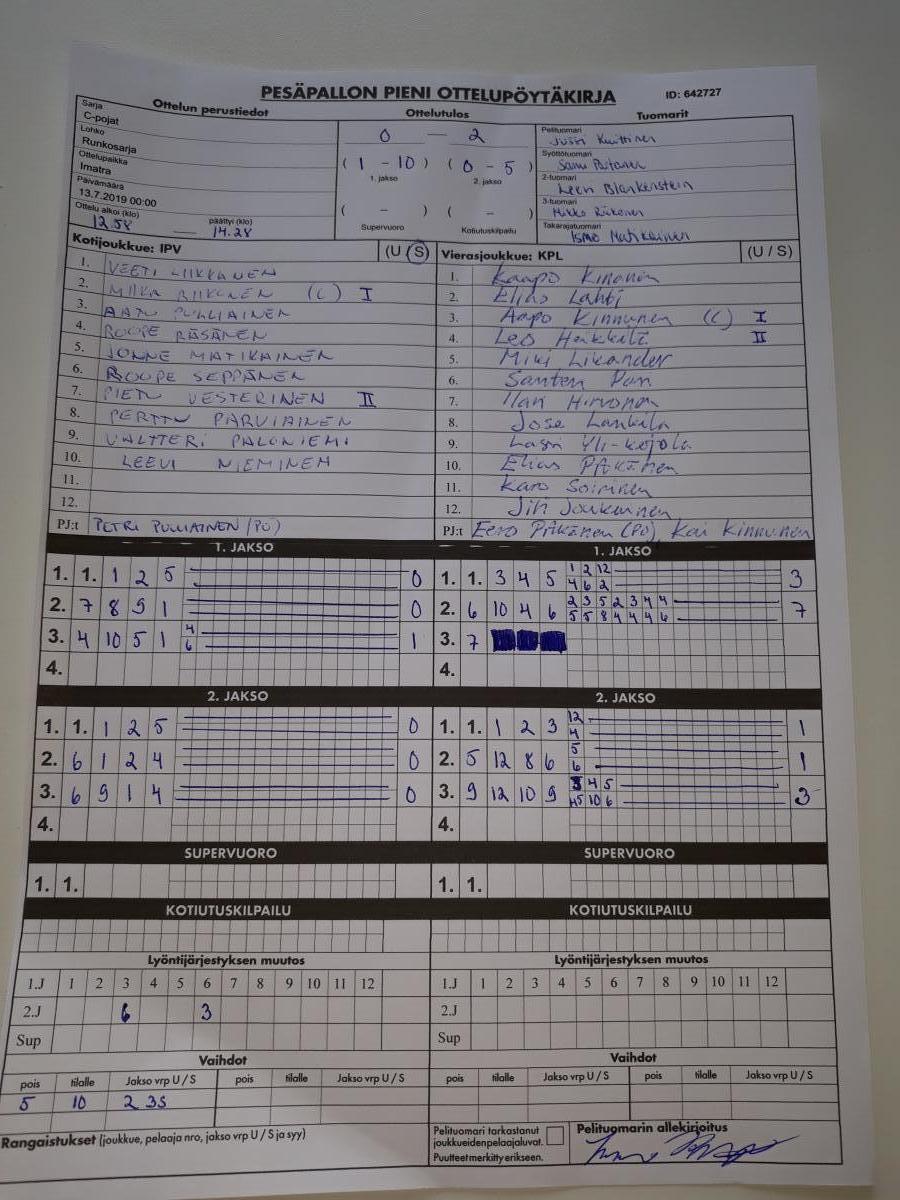 PESÄPALLON PIENI OTTELUPÖYTÄKIRJA
ID: 642727
Ottelun perustiedot
Ottelutulos
Tuomarit
Sarja
C-pojat
Lohko
Runkosarja
Ottelupaikka
Imatra
Päivämäärä
13.7.2019 00:00
Ottelu alkoi (klo) päättyi (klo)
12.58 — 14.28
0 — 2
( 1 - 10 ) ( 0 - 5 )
1. jakso 2. jakso
( - ) ( - )
Supervuoro Kotiutuskilpailu
Pelituomari
Jussi Kuittinen
Syöttötuomari
Sami
2-tuomari
Leen Blankenstein
3-tuomari
Mikko
Takarajatuomari
Ismo Matikainen
Kotijoukkue: IPV (U / S)
1. VEETI LIIKKANEN
2. MIIKA RIIKONEN (C) I
3. AATU PULLIAINEN
4. ROOPE RÄSÄNEN
5. JONNE MATIKAINEN
6. ROOPE SEPPÄNEN
7. PIETU VESTERINEN II
8. PERTTU PARVIAINEN
9. VALTTERI PALONIEMI
10. LEEVI NIEMINEN
11.
12.
PJ:t PETRI PULLIAINEN (PO)
Vierasjoukkue: KPL (U / S)
1. Kaapo Kinonen
2. Elias Lahti
3. Aapo Kinnunen (C) I
4. Leo Heikkilä II
5. Miki Likander
6. Santeri
7. Ilari Hirvonen
8. Jose Lankila
9. Lassi Yli-Kejola
10. Elias Päkinen
11. Karo Soirinen
12. Jiri Joukainen
PJ:t Eero Päkänen (PO), Kai Kinnunen
1. JAKSO
1. 1. 1 2 5 0
2. 7 8 9 1 0
3. 4 10 5 1 4 6 1
4.
1. JAKSO
1. 1. 3 4 5 1 2 12 3
4 6 2
2. 6 10 4 6 2 3 5 2 3 4 4 7
5 5 8 4 4 4 6
3. 7
4.
2. JAKSO
1. 1. 1 2 5 0
2. 6 1 2 4 0
3. 6 9 1 4 0
4.
2. JAKSO
1. 1. 1 2 3 12 4 1
2. 5 12 8 6 5 6 1
3. 9 12 10 9 3 4 5 3
10 6
4.
SUPERVUORO
1. 1.
SUPERVUORO
1. 1.
KOTIUTUSKILPAILU
KOTIUTUSKILPAILU
Lyöntijärjestyksen muutos
1.J 1 2 3 4 5 6 7 8 9 10 11 12
2.J 6 3
Sup
Lyöntijärjestyksen muutos
1.J 1 2 3 4 5 6 7 8 9 10 11 12
2.J
Sup
Vaihdot
pois tilalle Jakso vrp U / S pois tilalle Jakso vrp U / S
5 10 2 3S
Vaihdot
pois tilalle Jakso vrp U / S pois tilalle Jakso vrp U / S
Rangaistukset (joukkue, pelaaja nro, jakso vrp U / S ja syy)
Pelituomari tarkastanut
joukkueidenpelaajaluvat.
Puutteet merkitty erikseen.
Pelituomarin allekirjoitus